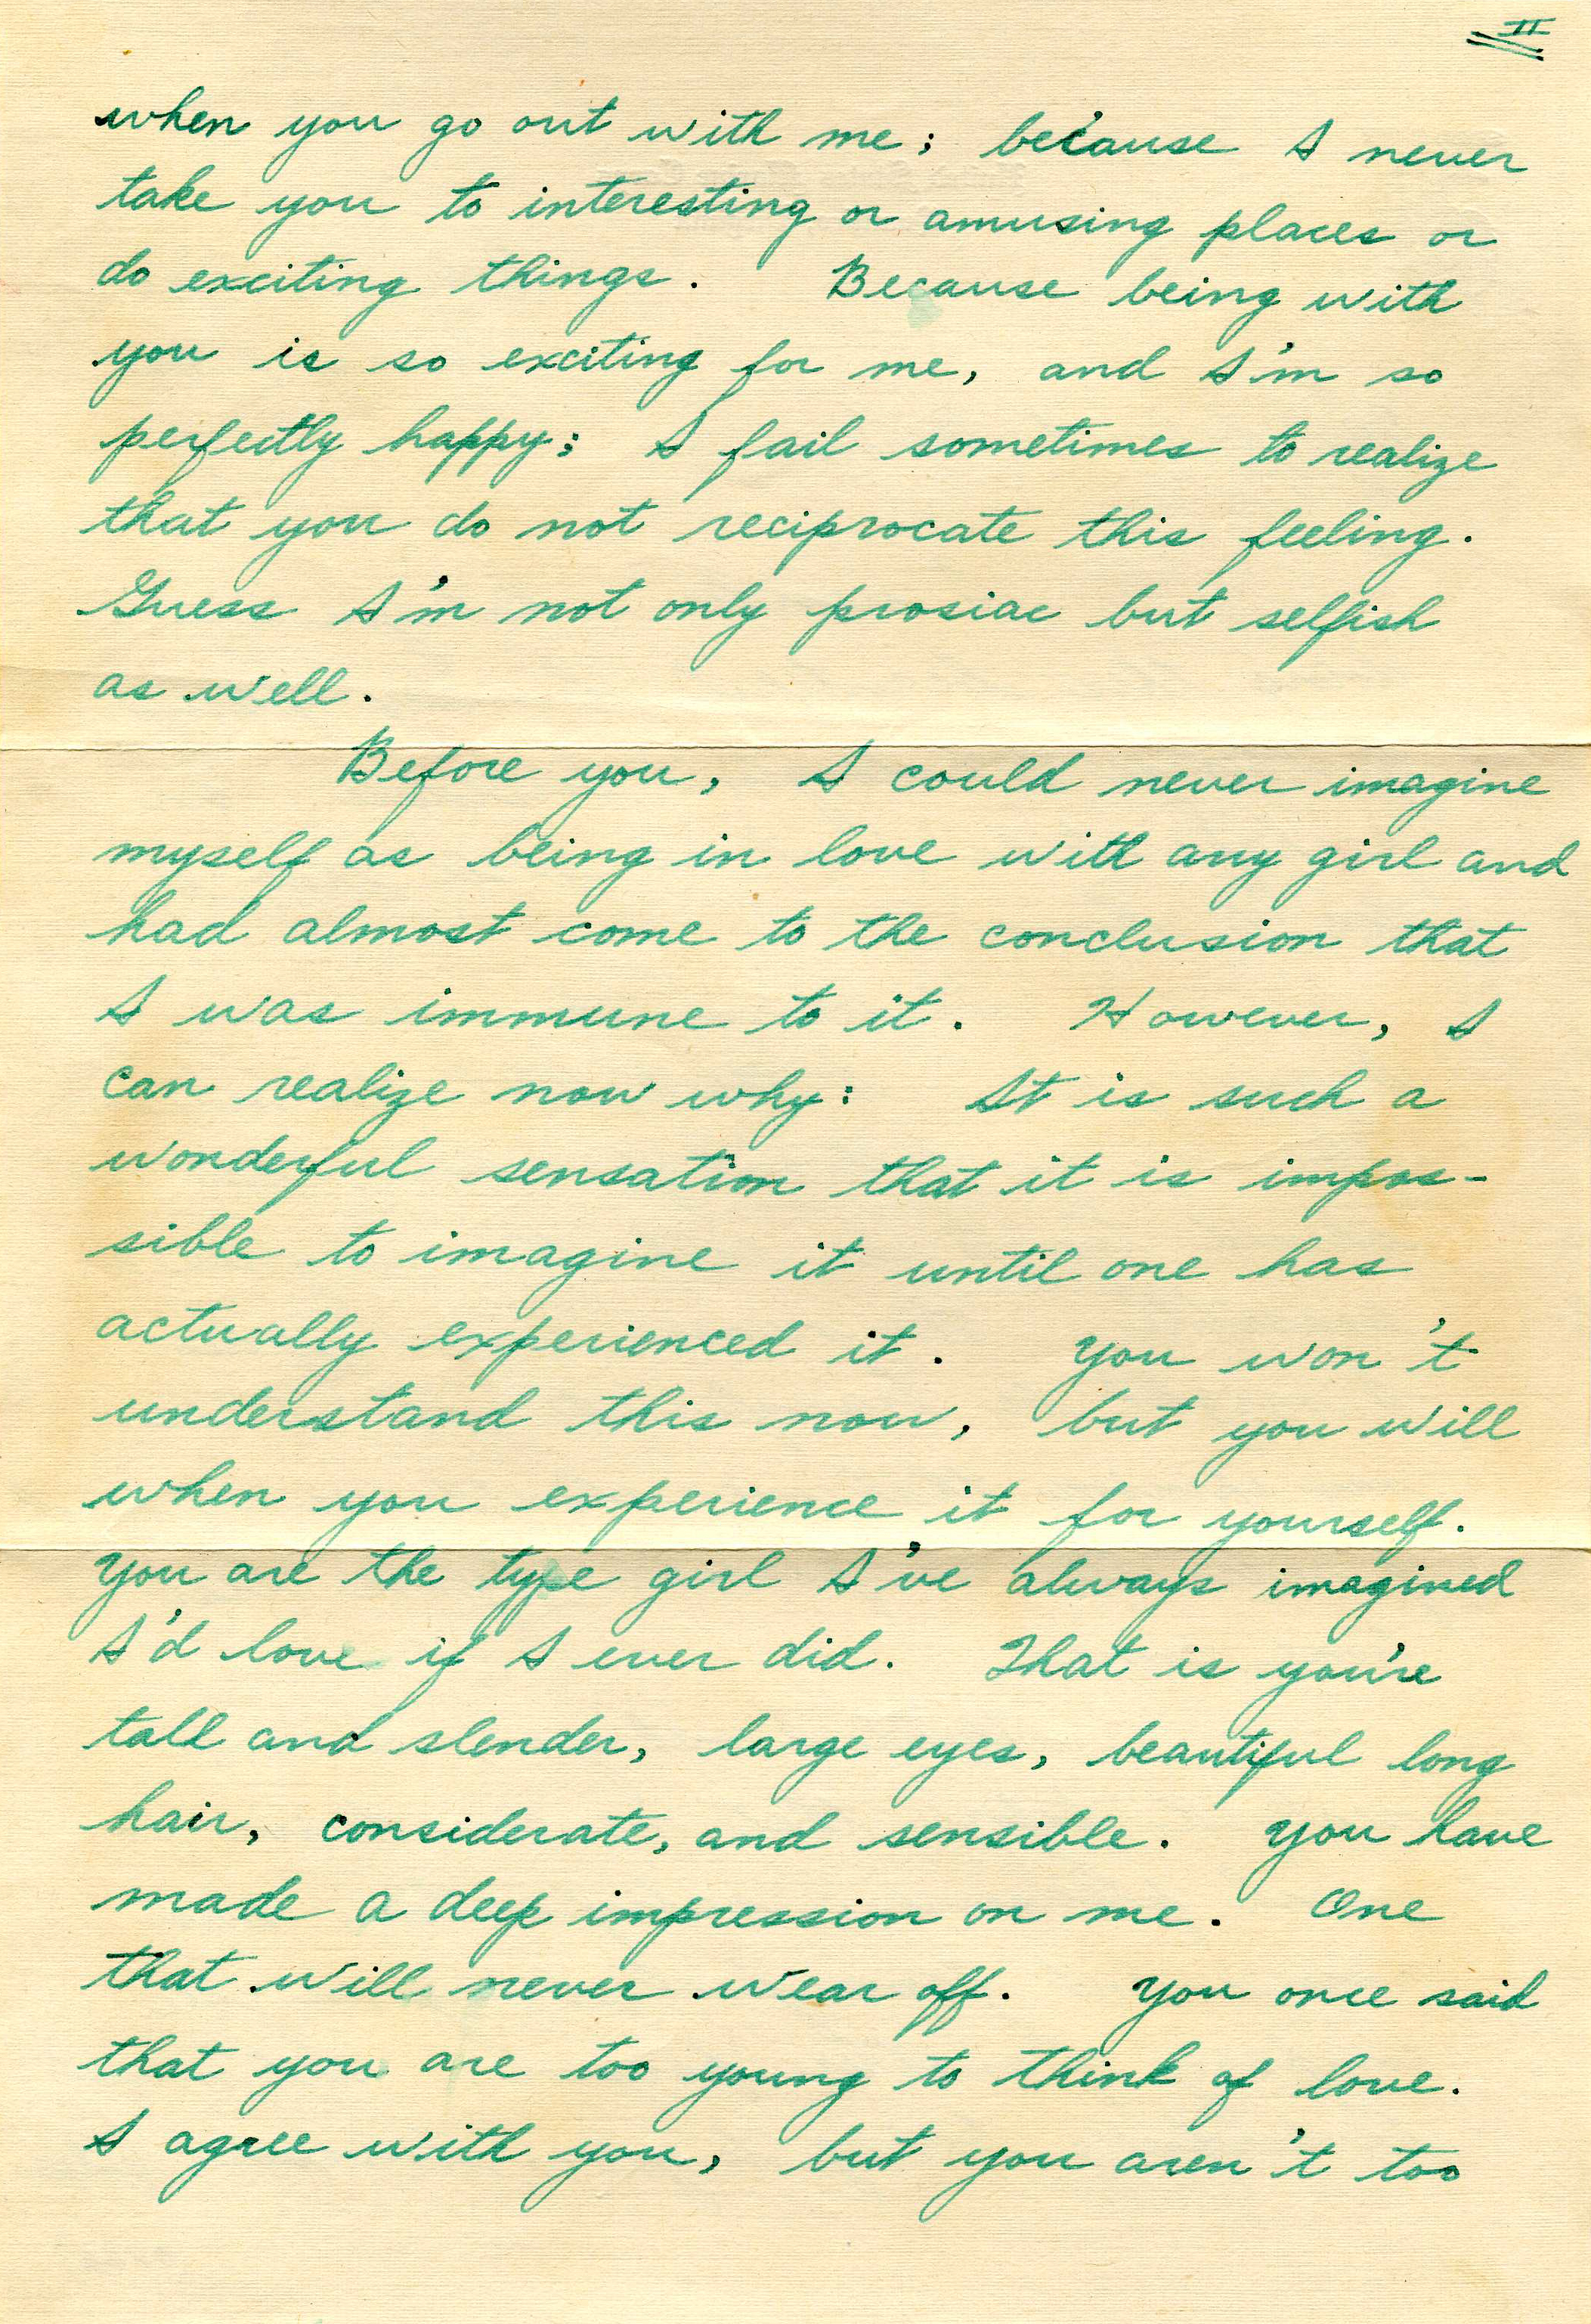 II
when you go out with me; because I never
take you to interesting or amusing places or
do exciting things. Because being with
you is so exciting for me, and I'm so
perfectly happy; I fail sometimes to realize
that you do not reciprocate this feeling.
Guess I'm not only prosiac but selfish
as well.
Before you, I could never imagine
myself as being in love with any girl and
had almost come to the conclusion that
I was immune to it. However, I
can realize now why: It is such a
wonderful sensation that it is impos-
sible to imagine it until one has
actually experienced it. You won't
understand this now, but you will
when you experience it for yourself.
You are the type girl I've always imagined
I'd love if I ever did. That is you're
tall and slender, large eyes, beautiful long
hair, considerate, and sensible. You have
made a deep impression on me. One
that will never wear off. You once said
that you are too young to think of love.
I agree with you, but you aren't too